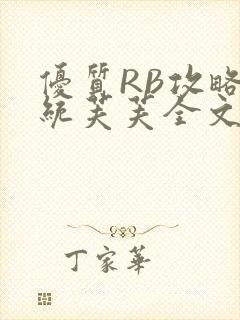 優質RB攻略
統芙芙全文
丁家華